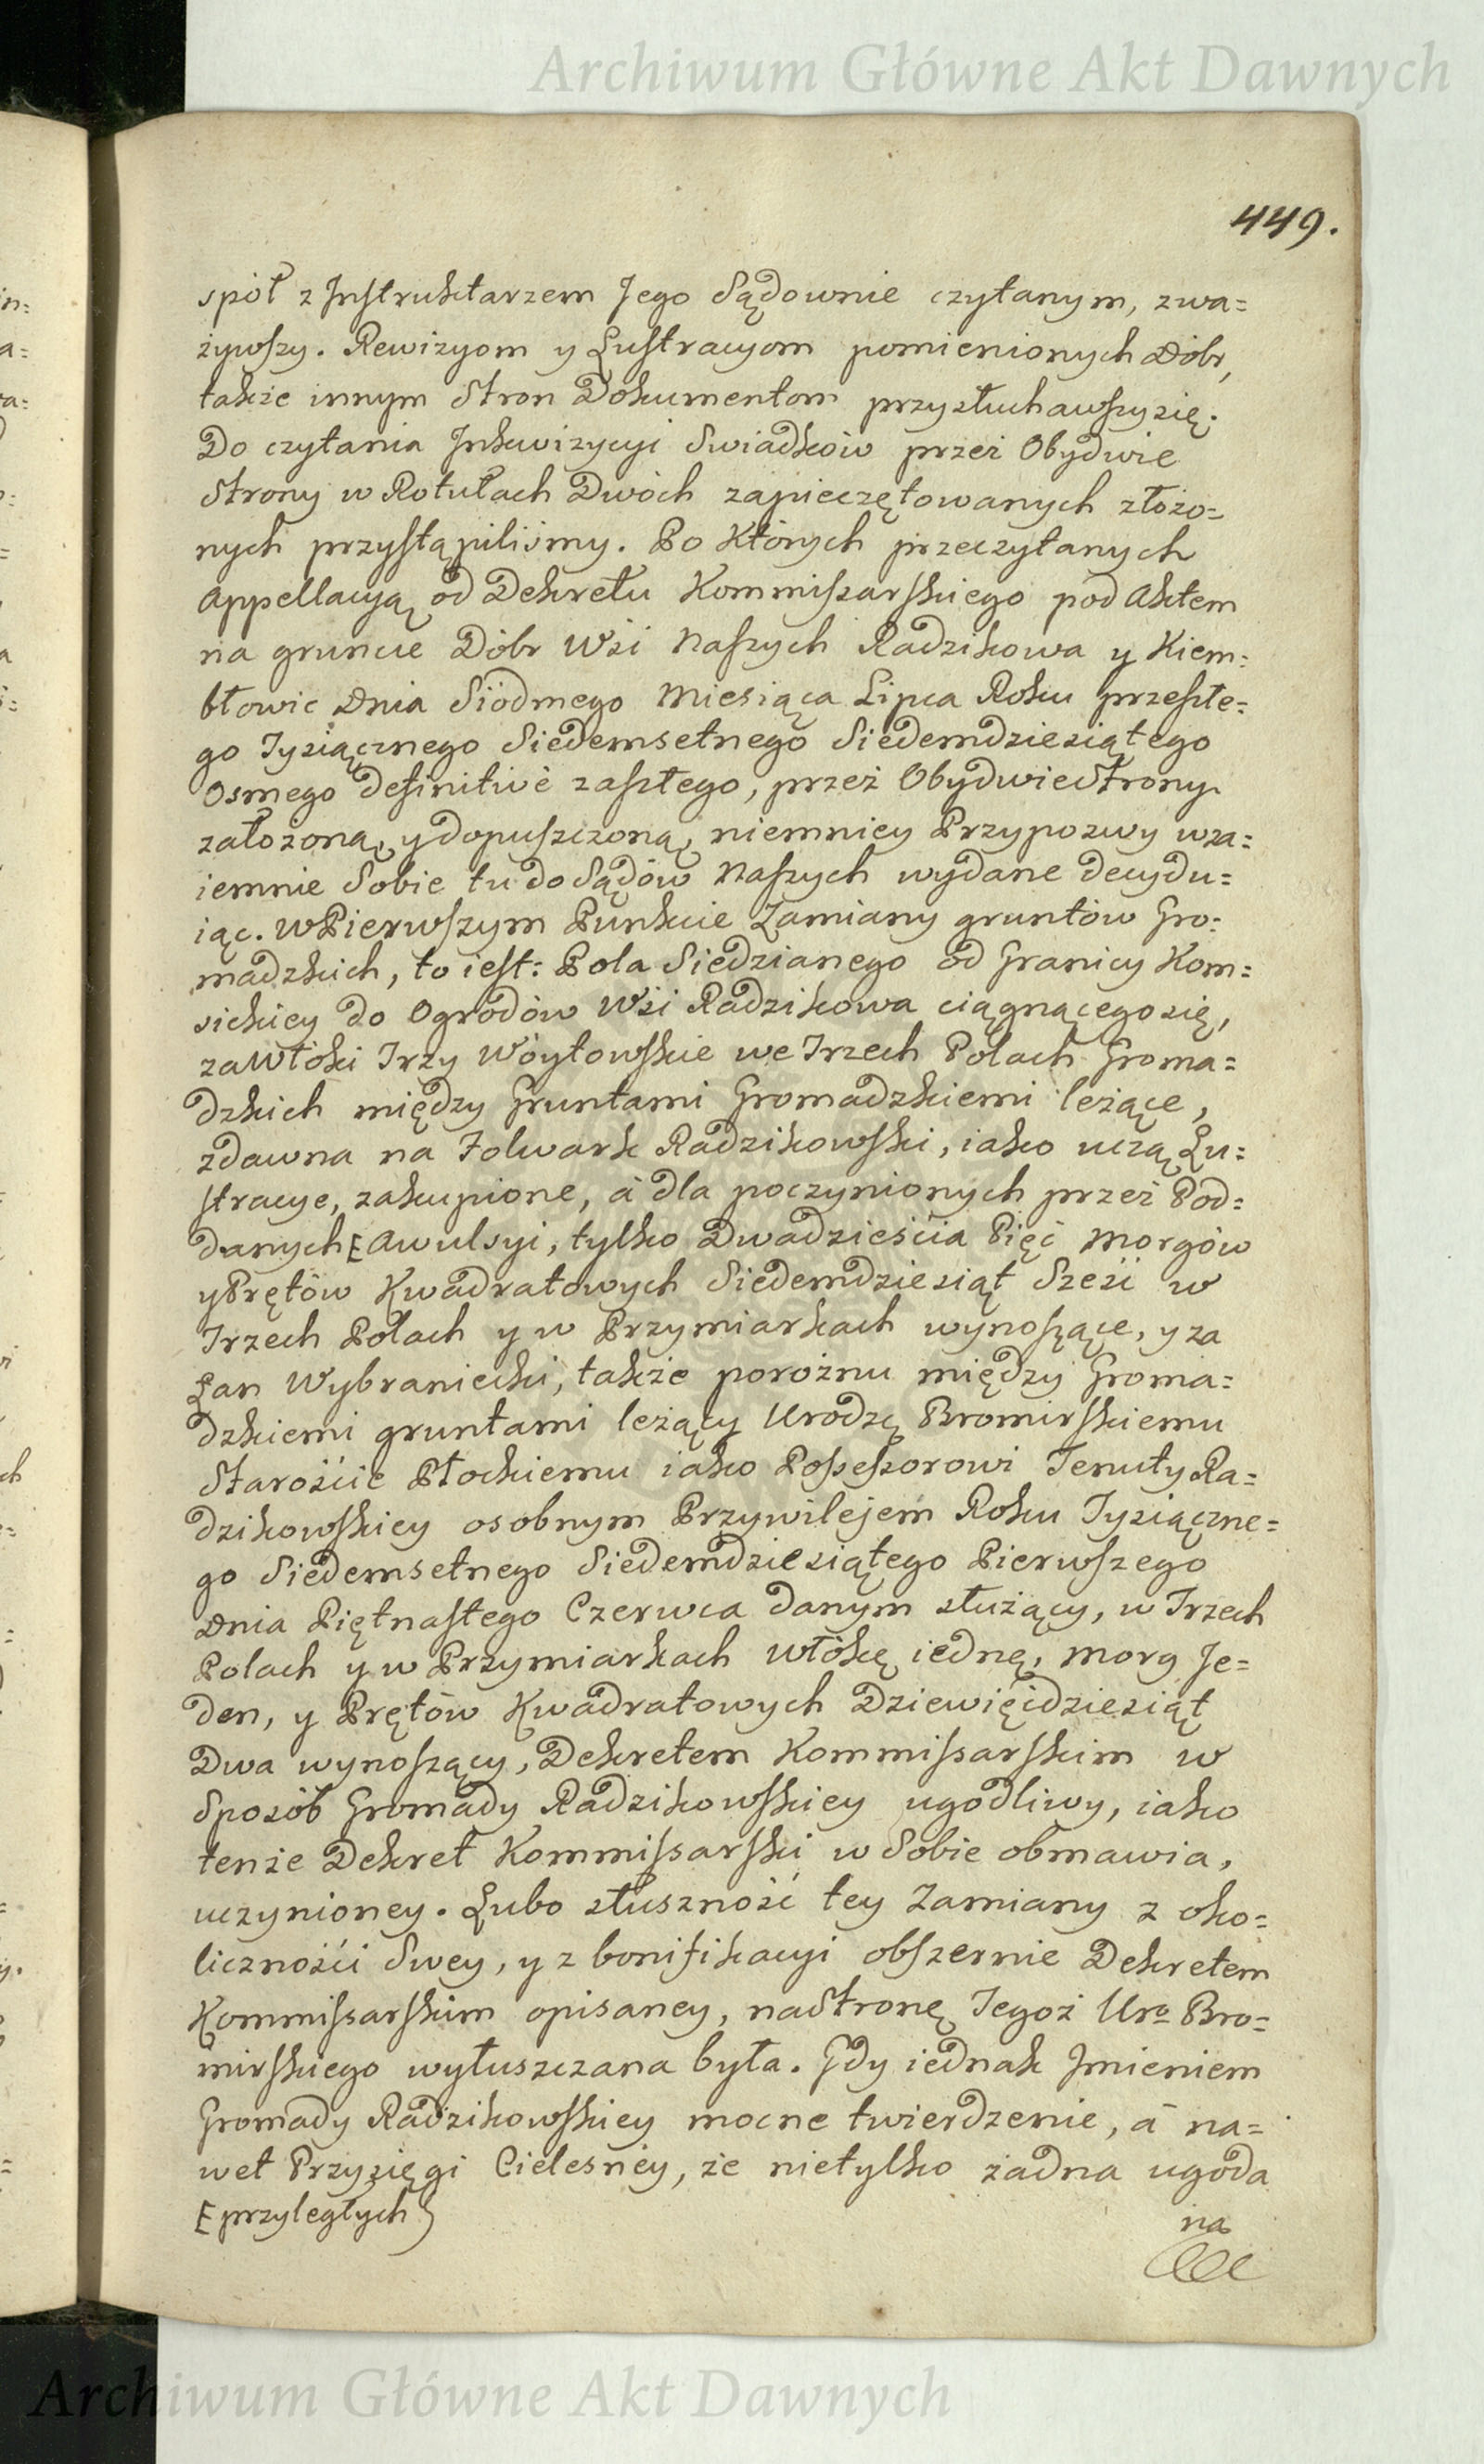 Archiwum Główne Akt Dawnych
449.
spół z Jnstruktarzem Jego Sądownie czytanym, zwa=
żywszy. Rewizyom y Lustracyom pomienionych Dóbr,
także innym Stron Dokumentom przysłuchawszy się.
Do czytania Jnkwizycyi Swiadków przez Obydwie
Strony w Rotułach Dwóch zapieczętowanych złożo=
nych przystąpiliśmy. Po Których przeczytanych
Appellacyą od Dekretu Kommissarskiego pod Aktem
na gruncie Dóbr Wsi Naszych Radzikowa y Kiem=
błowic Dnia Siódmego Miesiąca Lipca Roku przeszłe=
go Tysiącznego Siedemsetnego Siedemdziesiątego
Osmego definitivè zaszłego, przez Obydwie Strony
założoną, y dopuszczoną, niemniey Przypozwy wza=
iemnie Sobie tu do Sądów Naszych wydane decydu=
iąc. W Pierwszym Punkcie Zamiany gruntów Gro=
madzkich, to iest: Pola Siedzianego od Granicy Kom=
sickiey do Ogrodów Wsi Radzikowa ciągnącego się,
za Włóki Trzy Wóytowskie we Trzech Polach Groma=
dzkich między Gruntami Gromadzkiemi leżące,
zdawna na Folwark Radzikowski, iako uczą Lu=
stracye, zakupione, á dla poczynionych przez Pod=
danych [ Awulsyi, tylko Dwadzieścia Pięć Morgów
y Prętów Kwadratowych Siedemdziesiąt Sześć w
Trzech Polach y w Przymiarkach wynoszące, y za
Łan Wybraniecki, także porożnu między Groma=
dzkiemi gruntami leżący Urodzę Bromirskiemu
Starościе Płockiemu iako Possessorowi Tenuty Ra=
dzikowskiey osobnym Przywilejem Roku Tysiączne=
go Siedemsetnego Siedemdziesiątego Pierwszego
Dnia Piętnastego Czerwca danym służący, w Trzech
Polach y w Przymiarkach włókę iednę, morg Je=
den, y Prętów Kwadratowych Dziewięćdziesiąt
Dwa wynoszący, Dekretem Kommissarskim w
Sposób Gromady Radzikowskiey ugodliwy, iako
tenże Dekret Kommissarski w Sobie obmawia,
uczynioney. Lubo słuszność tey Zamiany z oko=
liczności Swey, y z bonifikacyi obszernie Dekretem
Kommissarskim opisaney, na Stronę Tegoż Uro Bro=
mirskiego wyłuszczana była. Gdy iednak Jmieniem
Gromady Radzikowskiey mocne twierdzenie, á na=
wet Przysięgi Cielesnéy, że nietylko żadna ugoda
[ przyległych
na
Archiwum Główne Akt Dawnych